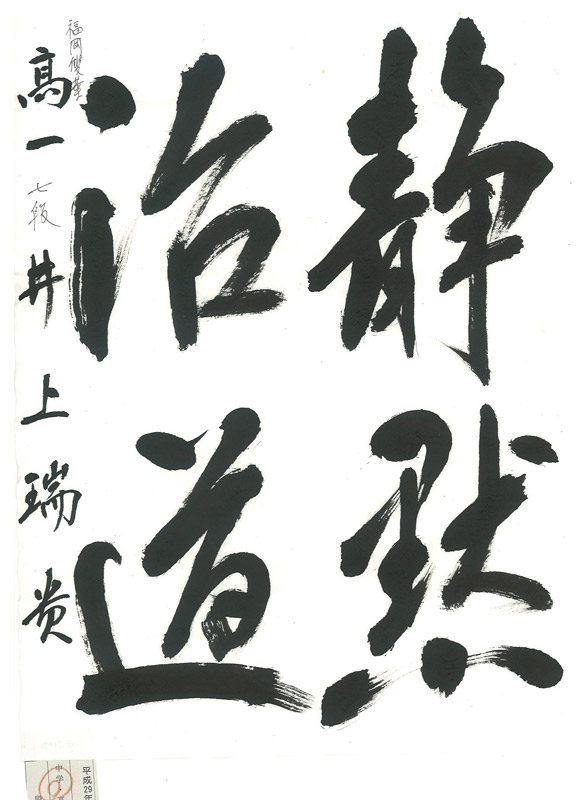 静黙
治道
福岡雙葉
高一 七段 井上瑞貴
平成29年
中学